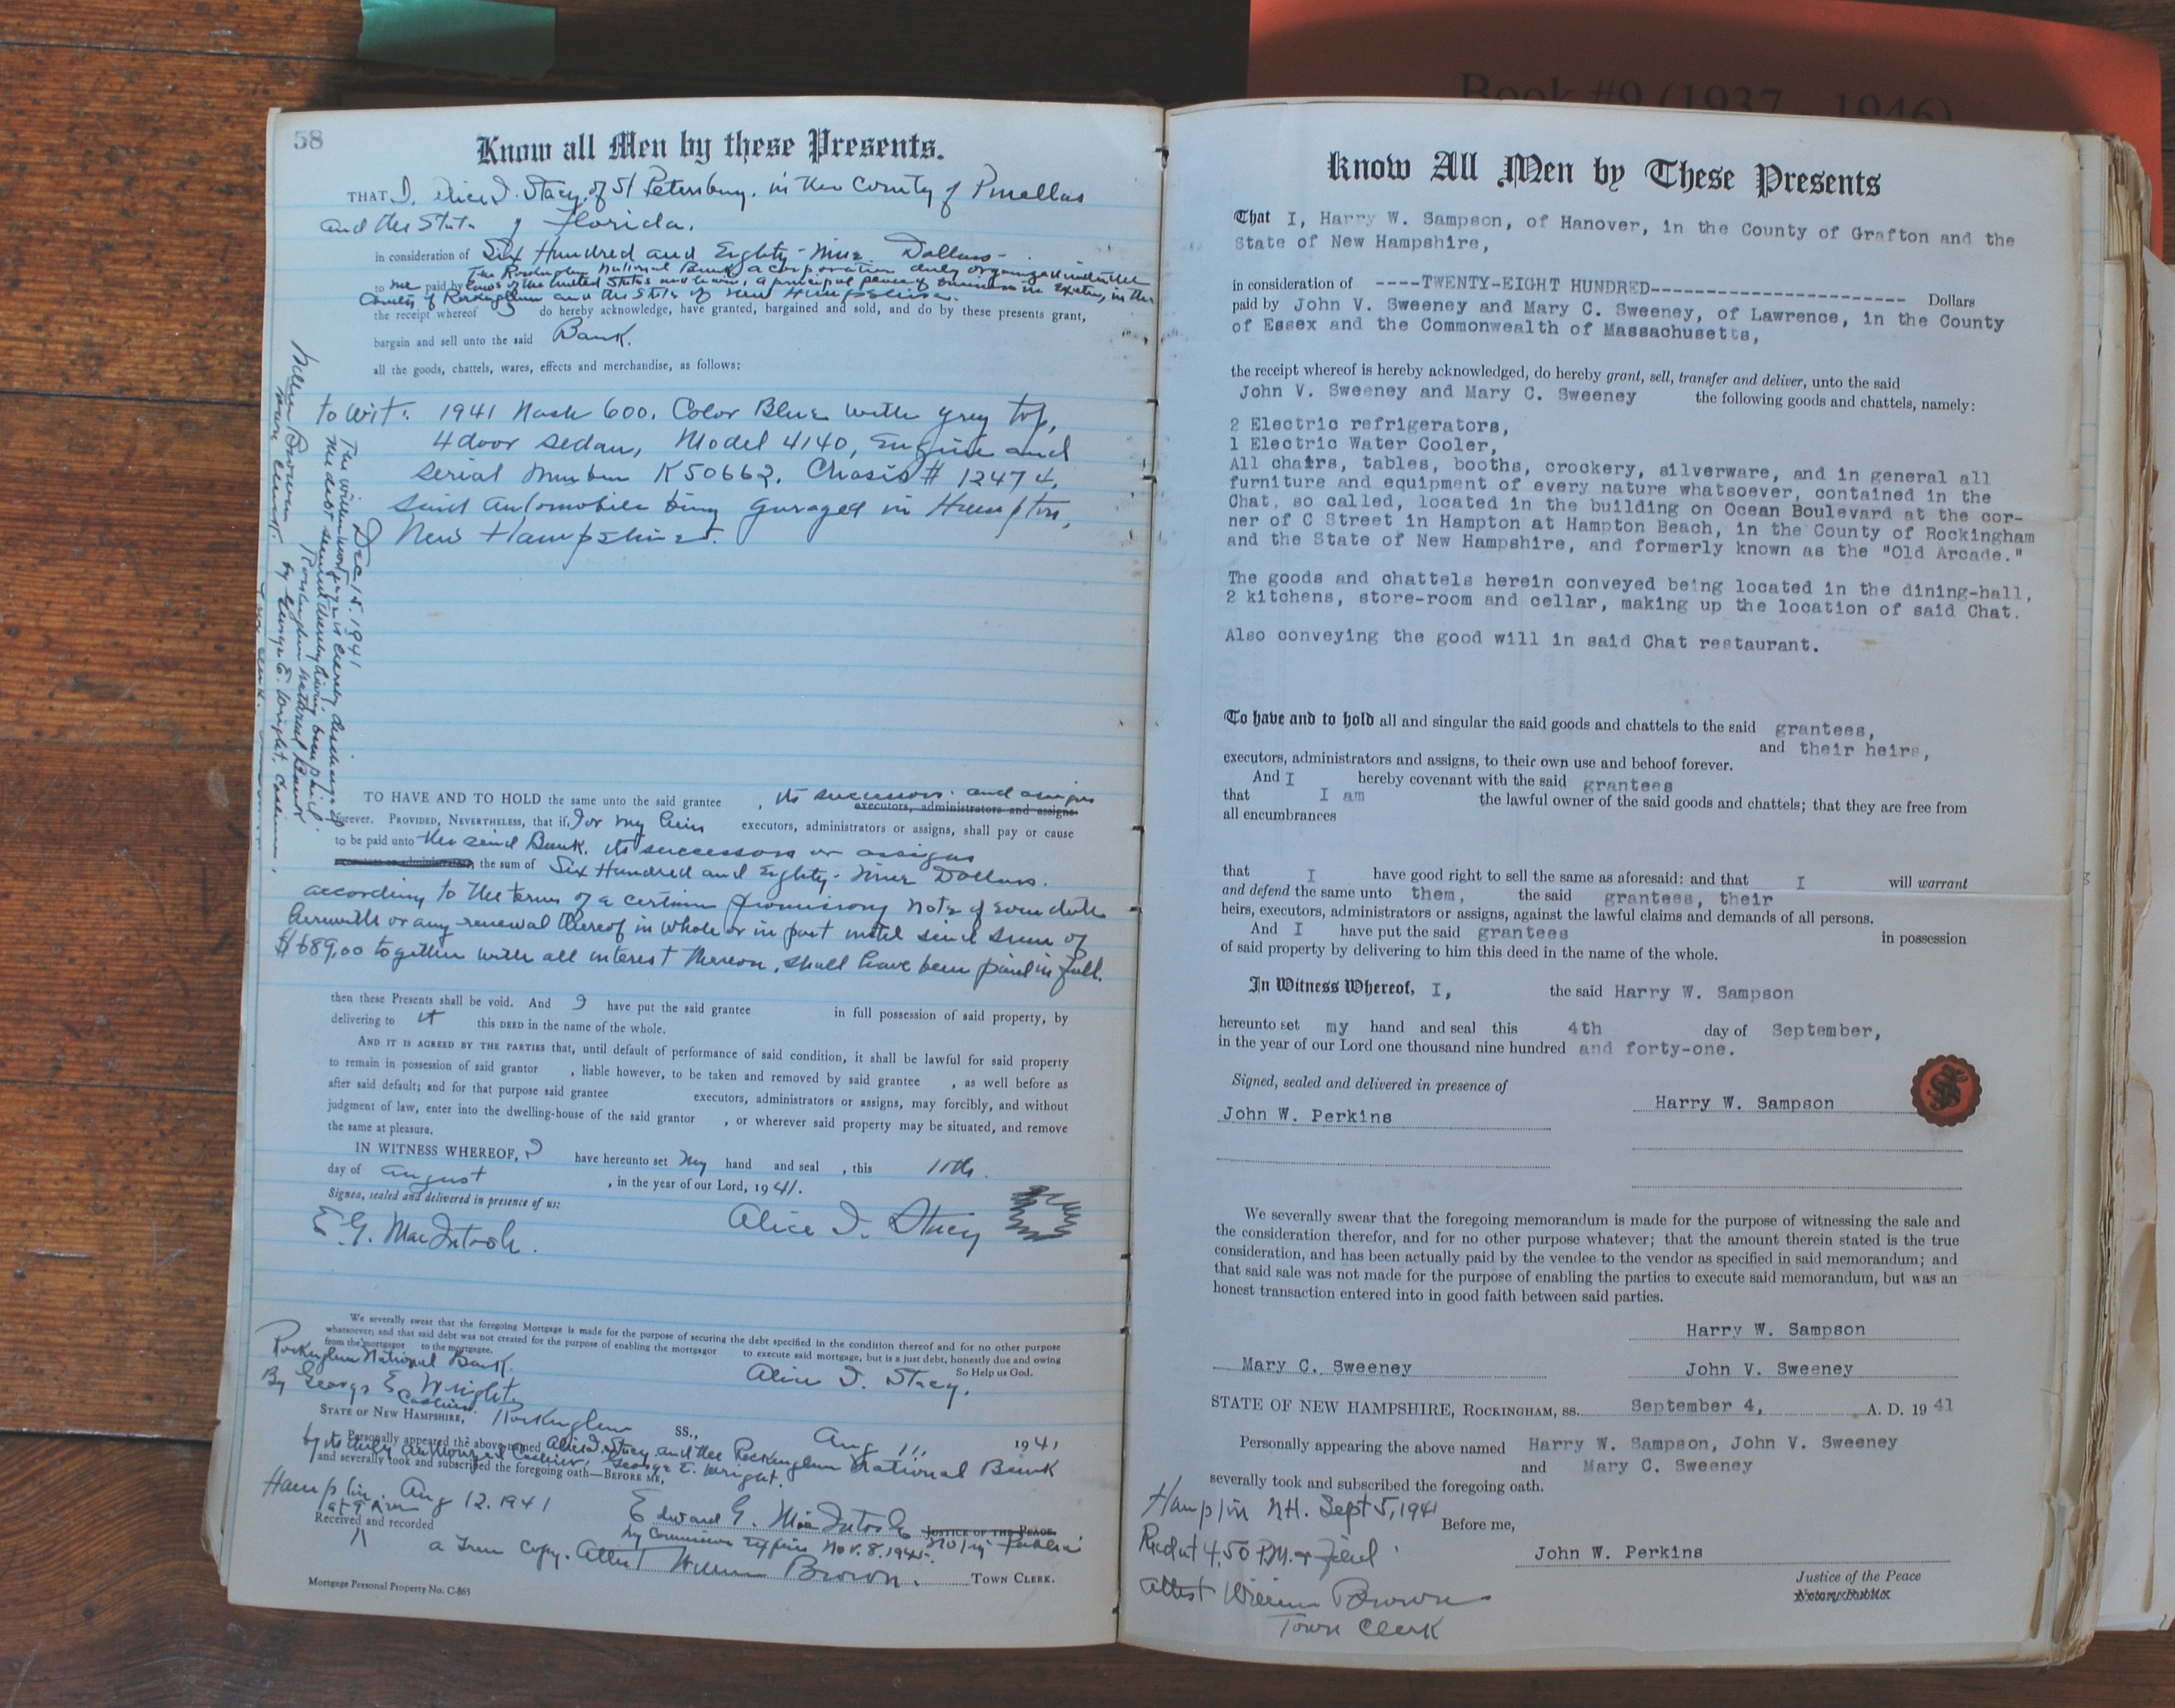 Book #9 (1937 - 1946)
58
Know all Men by these Presents.
THAT I, Alice I. Stacy, of St Petersburg, in the County of Pinellas
and the State of Florida.
in consideration of Six Hundred and Eighty-Nine Dollars-
The Rockingham National Bank, a corporation duly organized under the
to me paid by laws of the United States and having a principal place of business in Exeter, in the
County of Rockingham and the State of New Hampshire.
the receipt whereof I do hereby acknowledge, have granted, bargained and sold, and do by these presents grant,
bargain and sell unto the said Bank.
all the goods, chattels, wares, effects and merchandise, as follows:
to wit: 1941 Nash 600, Color Blue with grey top,
4 door sedan, Model 4140, Engine and
serial number K50662, Chasis # 12474,
said automobile being garaged in Hampton,
New Hampshire.
Dec 15. 1941
The within mortgage is hereby discharged
the debt secured thereby having been paid.
Rockingham National Bank
by George E. Wright, Cashier.
William Brown
Town Clerk.
TO HAVE AND TO HOLD the same unto the said grantee , its successors and assigns
executors, administrators and assigns
forever. PROVIDED, NEVERTHELESS, that if I or my heirs executors, administrators or assigns, shall pay or cause
to be paid unto the said Bank, its successors or assigns
executors or administrators, the sum of Six Hundred and Eighty-Nine Dollars.
according to the terms of a certain promissory note of even date
herewith or any renewal thereof in whole or in part until said sum of
$689.00 together with all interest thereon, shall have been paid in full.
then these Presents shall be void. And I have put the said grantee in full possession of said property, by
delivering to it this DEED in the name of the whole.
AND IT IS AGREED BY THE PARTIES that, until default of performance of said condition, it shall be lawful for said property
to remain in possession of said grantor , liable however, to be taken and removed by said grantee , as well before as
after said default; and for that purpose said grantee executors, administrators or assigns, may forcibly, and without
judgment of law, enter into the dwelling-house of the said grantor , or wherever said property may be situated, and remove
the same at pleasure.
IN WITNESS WHEREOF, I have hereunto set my hand and seal , this 11th.
day of August , in the year of our Lord, 1941.
Signed, sealed and delivered in presence of us:
E. G. MacIntosh. Alice I. Stacy
We severally swear that the foregoing Mortgage is made for the purpose of securing the debt specified in the condition thereof and for no other purpose
whatsoever; and that said debt was not created for the purpose of enabling the mortgagor to execute said mortgage, but is a just debt, honestly due and owing
from the mortgagor to the mortgagee. So Help us God.
Rockingham National Bank. Alice I. Stacy.
By George E. Wright
Cashier.
STATE OF NEW HAMPSHIRE, Rockingham SS., Aug 11, 1941
Personally appeared the above named Alice I. Stacy and the Rockingham National Bank
by its duly authorized Cashier, George E. Wright.
and severally took and subscribed the foregoing oath—BEFORE ME,
Hampton, Aug 12. 1941
at 9 A.M. Edward G. MacIntosh JUSTICE OF THE PEACE.
Received and recorded My Commission Expires Nov. 8. 1945. Notary Public
A True Copy. Attest William Brown. TOWN CLERK.
Mortgage Personal Property No. C-865
Know All Men by These Presents
That I, Harry W. Sampson, of Hanover, in the County of Grafton and the
State of New Hampshire,
in consideration of -----TWENTY-EIGHT HUNDRED------------------------ Dollars
paid by John V. Sweeney and Mary C. Sweeney, of Lawrence, in the County
of Essex and the Commonwealth of Massachusetts,
the receipt whereof is hereby acknowledged, do hereby grant, sell, transfer and deliver, unto the said
John V. Sweeney and Mary C. Sweeney the following goods and chattels, namely:
2 Electric refrigerators,
1 Electric Water Cooler,
All chairs, tables, booths, crockery, silverware, and in general all
furniture and equipment of every nature whatsoever, contained in the
Chat, so called, located in the building on Ocean Boulevard at the cor-
ner of C Street in Hampton at Hampton Beach, in the County of Rockingham
and the State of New Hampshire, and formerly known as the "Old Arcade."
The goods and chattels herein conveyed being located in the dining-hall,
2 kitchens, store-room and cellar, making up the location of said Chat.
Also conveying the good will in said Chat restaurant.
To have and to hold all and singular the said goods and chattels to the said grantees,
and their heirs,
executors, administrators and assigns, to their own use and behoof forever.
And I hereby covenant with the said grantees
that I am the lawful owner of the said goods and chattels; that they are free from
all encumbrances
that I have good right to sell the same as aforesaid: and that I will warrant
and defend the same unto them, the said grantees, their
heirs, executors, administrators or assigns, against the lawful claims and demands of all persons.
And I have put the said grantees in possession
of said property by delivering to him this deed in the name of the whole.
In Witness Whereof, I, the said Harry W. Sampson
hereunto set my hand and seal this 4th day of September,
in the year of our Lord one thousand nine hundred and forty-one.
Signed, sealed and delivered in presence of
John W. Perkins Harry W. Sampson
We severally swear that the foregoing memorandum is made for the purpose of witnessing the sale and
the consideration therefor, and for no other purpose whatever; that the amount therein stated is the true
consideration, and has been actually paid by the vendee to the vendor as specified in said memorandum; and
that said sale was not made for the purpose of enabling the parties to execute said memorandum, but was an
honest transaction entered into in good faith between said parties.
Harry W. Sampson
Mary C. Sweeney John V. Sweeney
STATE OF NEW HAMPSHIRE, ROCKINGHAM, SS. September 4, A. D. 1941
Personally appearing the above named Harry W. Sampson, John V. Sweeney
and Mary C. Sweeney
severally took and subscribed the foregoing oath.
Hampton NH. Sept 5, 1941 Before me,
Rec'd at 4.50 P.M. & Filed
John W. Perkins
Attest William Brown Justice of the Peace
Town Clerk Notary Public